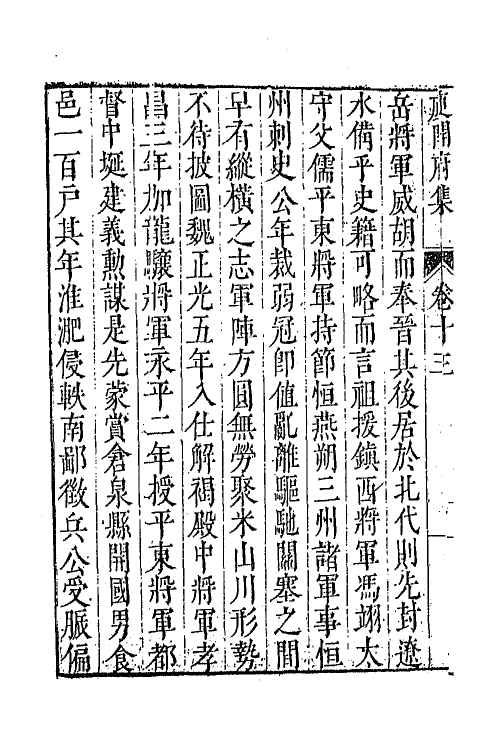 庾開府集 卷十三
岳將軍威胡而奉晉其後居於北代則先封遼
水備乎史籍可略而言祖援鎮西將軍馮翊太
守父儒平東將軍持節恒燕朔三州諸軍事恒
州刺史公年裁弱冠卽值亂離驅馳關塞之間
早有縱橫之志軍陣方圓無勞聚米山川形勢
不待披圖魏正光五年入仕解褐殿中將軍孝
昌三年加龍驤將軍永平二年授平東將軍都
督中堐建義勲謀是先蒙賞倉泉縣開國男食
邑一百戸其年淮淝侵軼南鄙徵兵公受脤偏